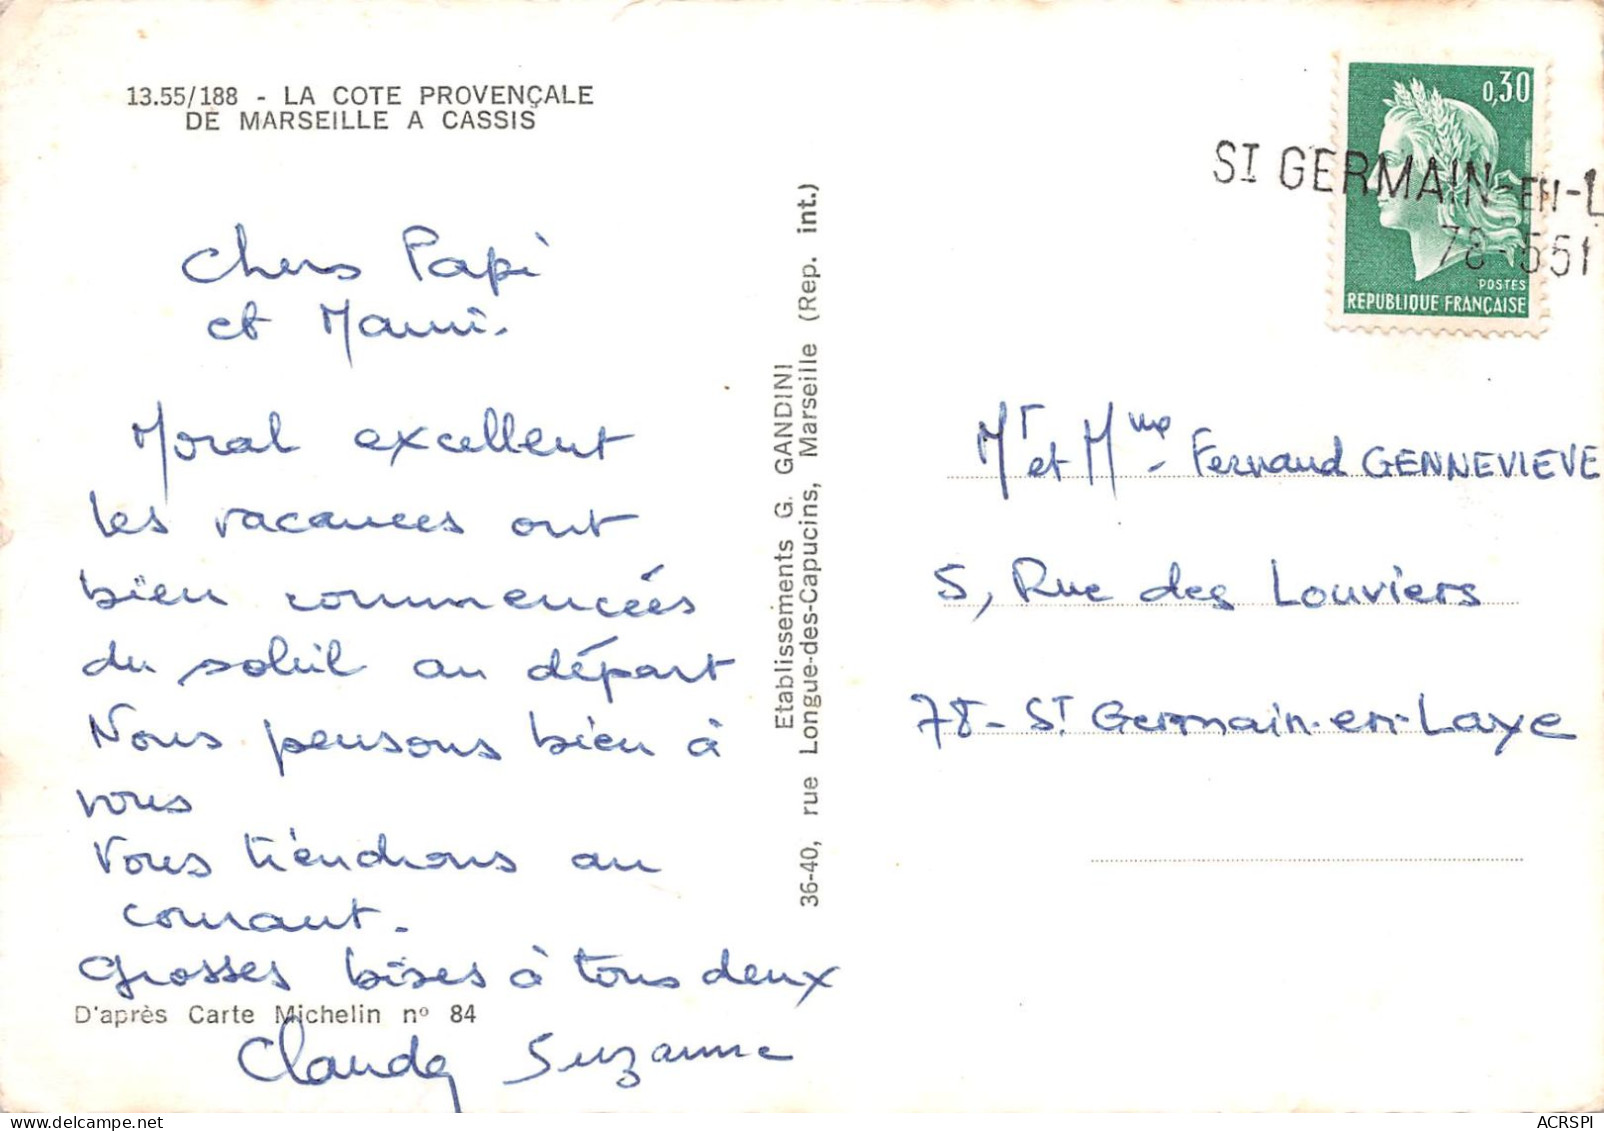 13.55/188 - LA COTE PROVENÇALE
DE MARSEILLE A CASSIS
Chers Papi
et Mami.
Moral excellent
les vacances ont
bien commencées
du soleil au départ
Nous pensons bien à
vous
Vous tiendrons au
courant.
Grosses bises à tous deux
D'après Carte Michelin nº 84
Claude Suzanne
Etablissements G. GANDINI
36-40, rue Longue-des-Capucins, Marseille (Rep. int.)
0,30
POSTES
REPUBLIQUE FRANÇAISE
ST GERMAIN-EN-L
78-551
Mr et Mme - Fernand GENNEVIEVE
5, Rue des Louviers
78 - St Germain-en-Laye
ACRSPI